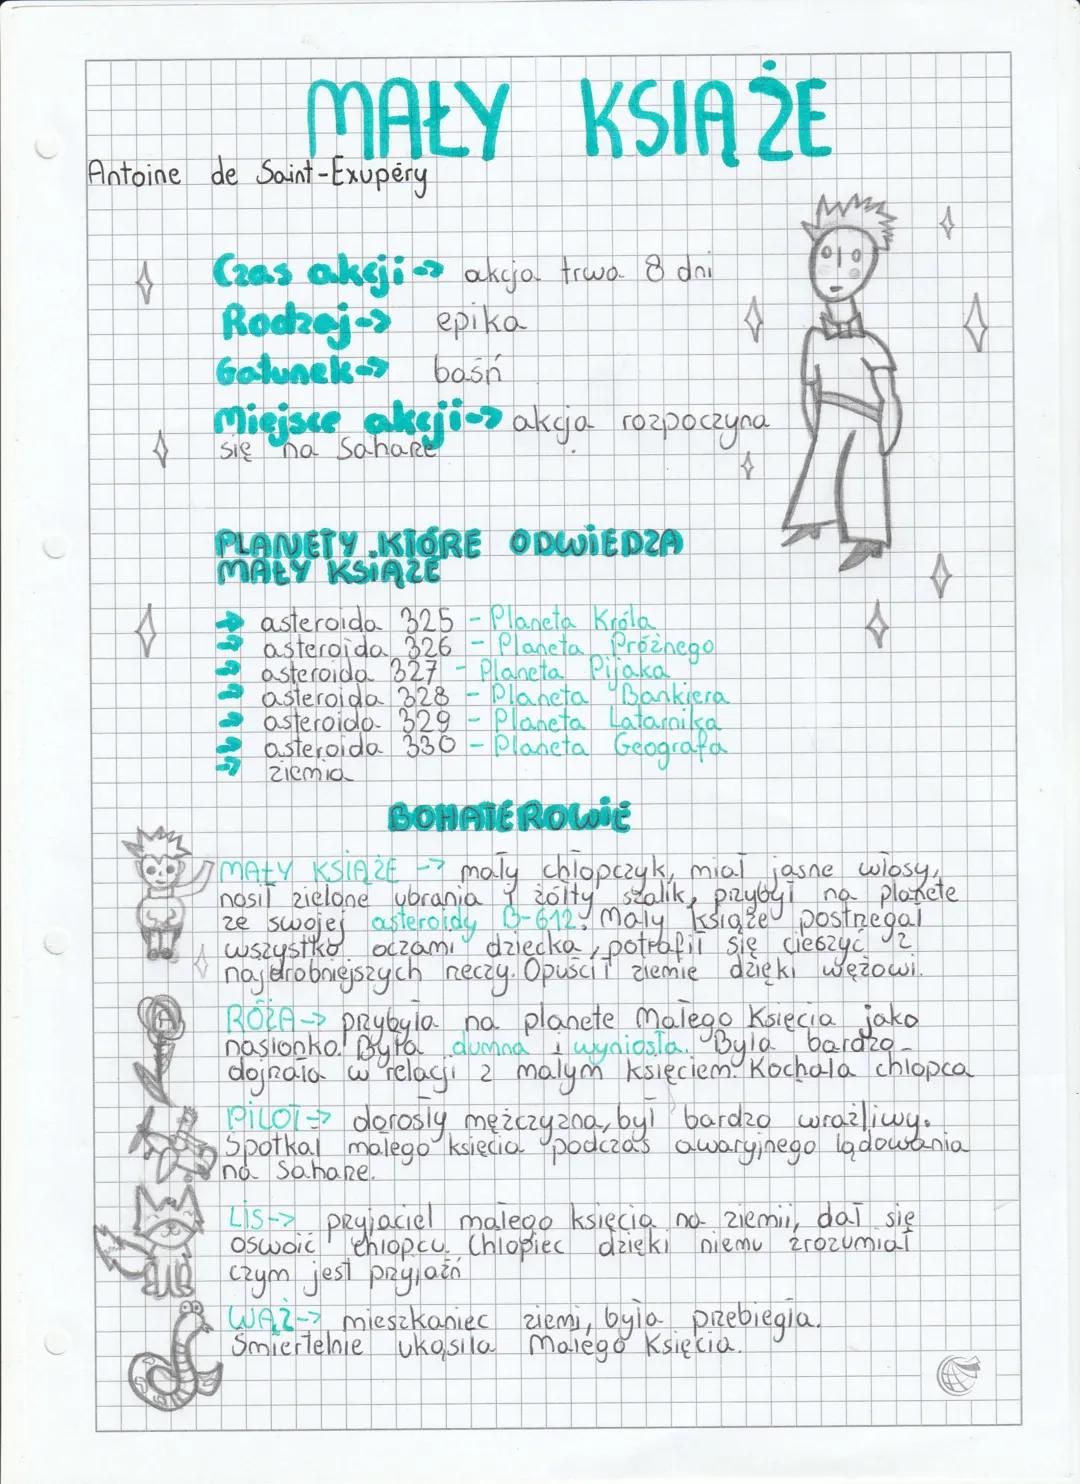 MAŁY KSIĄŻE
Antoine de Saint-Exupéry
Czas akcji -> akcja trwa 8 dni
Rodzaj -> epika
Gatunek -> baśń
Miejsce akcji -> akcja rozpoczyna
się na Saharze
PLANETY KTÓRE ODWIEDZA
MAŁY KSIĄŻE
→ asteroida 325 - Planeta Króla
→ asteroida 326 - Planeta Próżnego
→ asteroida 327 - Planeta Pijaka
→ asteroida 328 - Planeta Bankiera
→ asteroida 329 - Planeta Latarnika
→ asteroida 330 - Planeta Geografa
→ ziemia
BOHATEROWIE
MAŁY KSIĄŻE -> mały chłopczyk, miał jasne włosy,
nosił zielone ubrania i żółty szalik, przybył na planete
ze swojej asteroidy B-612. Mały książe postrzegał
wszystko oczami dziecka, potrafił się cieszyć z
najdrobniejszych rzeczy. Opuścił ziemie dzięki wężowi.
RÓŻA -> przybyła na planete Małego Księcia jako
nasionko. Była dumna i wyniosła. Była bardzo
dojrzała w relacji z małym księciem. Kochała chłopca
PILOT -> dorosły mężczyzna, był bardzo wrażliwy.
Spotkał małego księcia podczas awaryjnego lądowania
na Saharze.
LIS -> przyjaciel małego księcia na ziemii, dał się
oswoić chłopcu. Chłopiec dzięki niemu zrozumiał
czym jest przyjaźń
WĄŻ -> mieszkaniec ziemi, była przebiegła.
Śmiertelnie ukąsiła Małego Księcia.